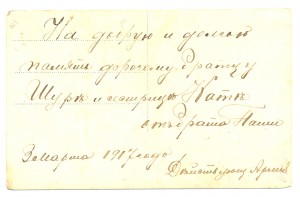 На добрую и долгую
память дорогому братцу
Шурѣ и сестрицѣ Катѣ
отъ брата Паши
Марта 1917 года
Действующая Армія